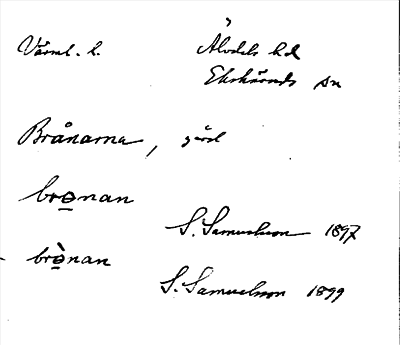 Värml. l. Älvdals hd
Ekshärads sn
Brånarna, gård
bro̲nan
S. Samuelsson 1897
brò̲nan
S. Samuelsson 1899